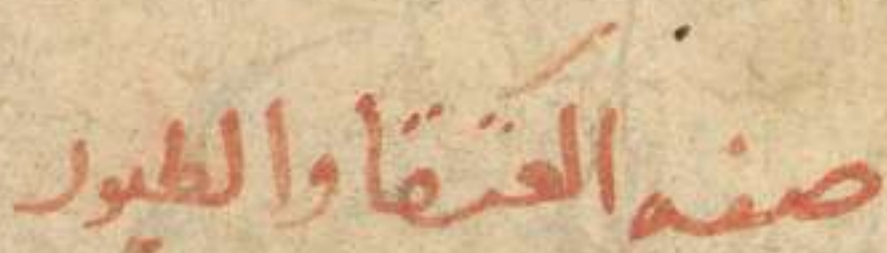 صفه العنقا والطيور